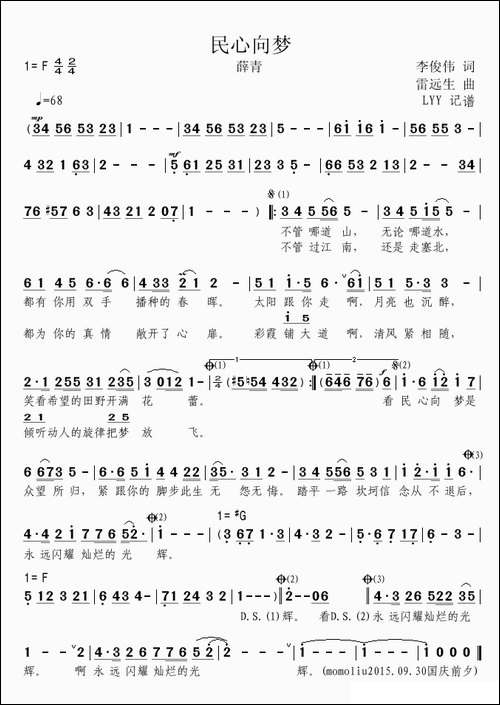 民心向梦
1= F 4/4 2/4 薛青 李俊伟 词
雷远生 曲
♩=68 LYY 记谱
mp
(34 56 53 23 | 1 - - - | 34 56 53 23 | 5 - - - | 61 16 1 - | 56 55 3 - |
mf
4 32 1 63 | 2 - - - | 5 61 25 31 | 23 3 5 - | 66 53 2 13 | 2 - - 34 |
76 #57 6 3 | 43 21 2 07 | 1 - - - ) ‖: 3 4 5 56 5 - | 3 4 5 15 5 - |
(1)
不管 哪道 山, 无论 哪道水,
不管 过江 南, 还是 走塞北,
61 45 6·6 | 4 33 21 2 - | 51 1·5 6· 61 | 51 5·3 3 - |
都有 你用 双手 播种的 春 晖。 太阳 跟你 走 啊, 月亮 也沉醉,
1 5
都为 你的 真情 敞开了 心 扉。 彩霞 铺大道 啊, 清风 紧相随,
(1) 1 2
2·1 255 31 235 | 3 012 1 - | 2/4 (#5 54 432) :‖ (646 76) 6 | 1·6 12 1 7 |
笑看希望的田野开满 花 蕾。 看 民心向 梦是
21 25
倾听动人的旋律把梦 放 飞。
(3)
6 673 5 - | 6·6 51 4 422 | 35· 31 2 - | 34 556 531 | 51 12 1 6· |
众望 所归, 紧 跟你的 脚步此生无 怨无悔。 踏平一路 坎坷信 念从 不退后,
(2) 1= #G
4·4 21 7 7 6 52· | 1 - - - | (3 67 1·3 | 4·3 2 - | 5·5 17 | 6·7 - 3 |
永 远闪耀 灿烂的 光 辉。
1= F (2) (3)
5 12 3 21 | 6 43 4 - | 71 24 3 2 | 1 - - - ) ‖ 2 - - 06 ‖ 4·3 26 522 35 |
D.S.(1)辉。 看D.S.(2)永 远闪耀灿烂的光
1 - - 2 | 4·3 2 67 7 6 52 | 2 - - - | 1 - - - | 1 - - - | 1000 ‖
辉。 啊 永 远 闪耀 灿烂的光 辉。(momoliu2015.09.30国庆前夕)